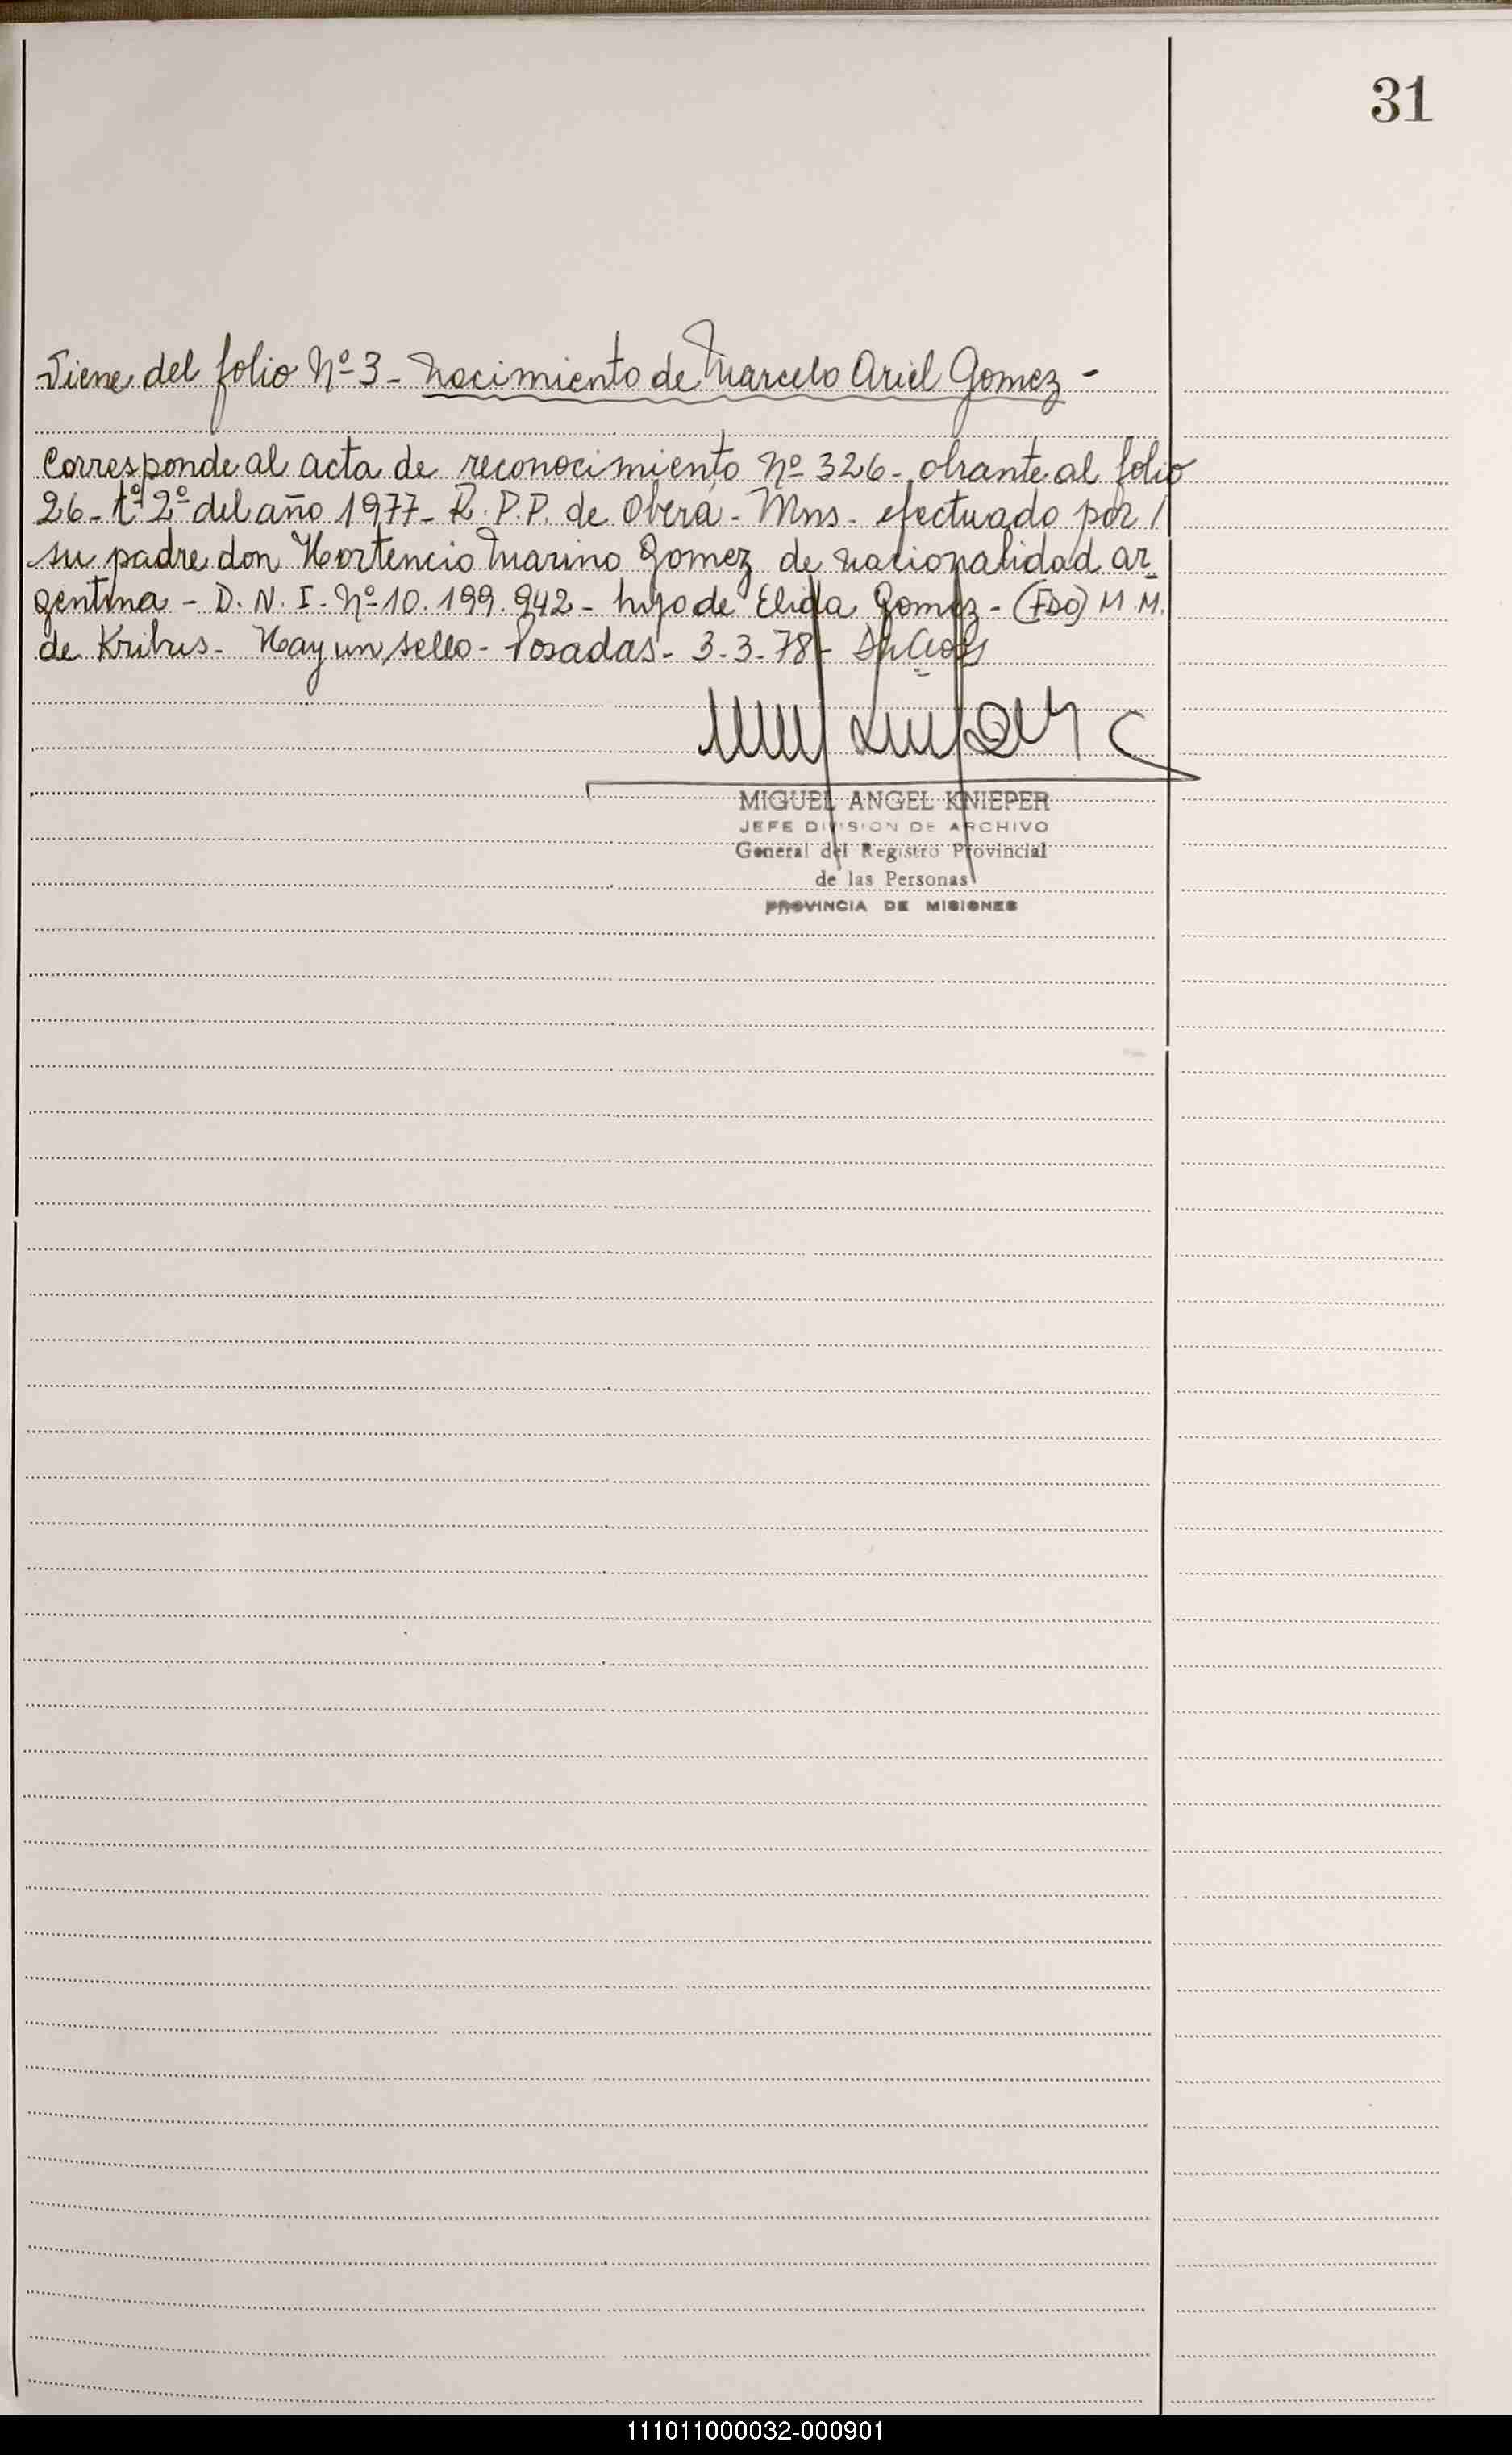 31
Viene del folio Nº 3 - Nacimiento de Marcelo Ariel Gomez -
Corresponde al acta de reconocimiento Nº 326 - obrante al folio
26 - tº 2º del año 1977 - R.P.P. de Oberá - Mns - efectuado por /
su padre don Hortencio Marino Gomez de nacionalidad ar_
gentina - D.N.I. Nº 10.199.942 - hijo de Elida Gomez - (FDO) M.M.
de Kribus - Hay un sello - Posadas - 3-3-78 -
MIGUEL ANGEL KNIEPER
JEFE DIVISION DE ARCHIVO
General del Registro Provincial
de las Personas
PROVINCIA DE MISIONES
111011000032-000901